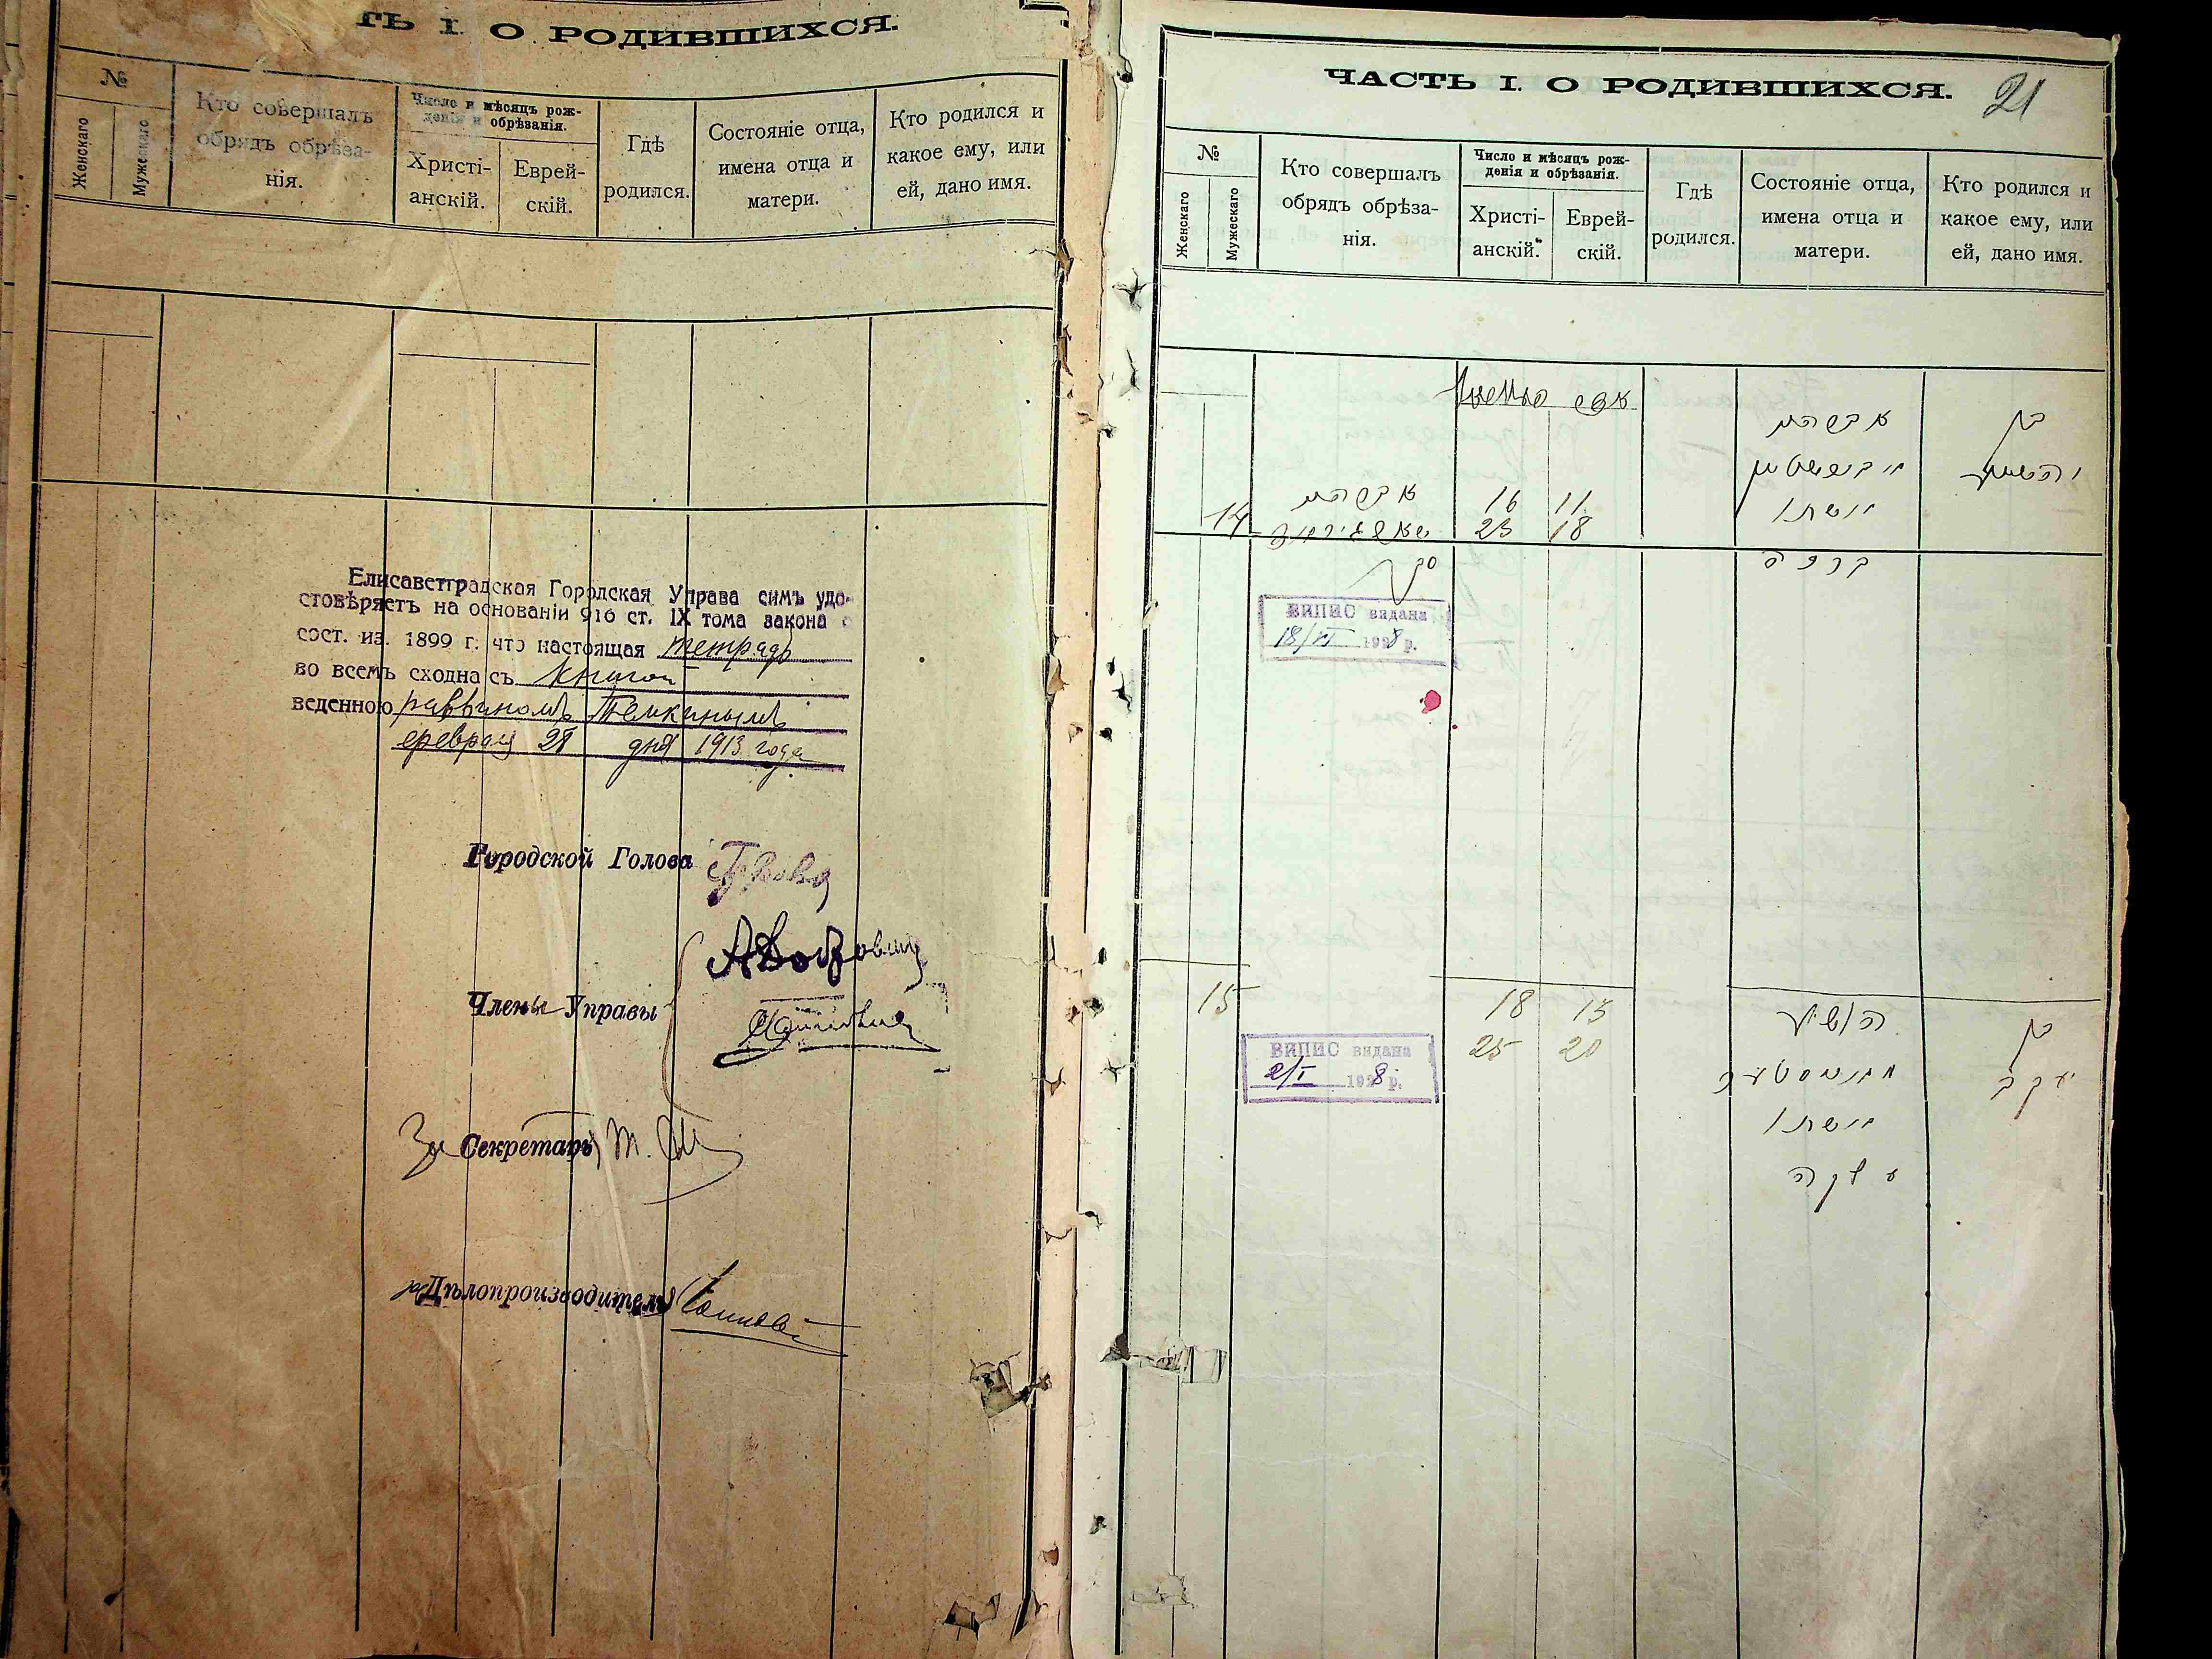 ТЬ I. О РОДИВШИХСЯ.
№
Женскаго
Мужескаго
Кто совершалъ
обрядъ обрѣза-
нія.
Число и мѣсяцъ рож-
денія и обрѣзанія.
Христі-
анскій.
Еврей-
скій.
Гдѣ
родился.
Состояніе отца,
имена отца и
матери.
Кто родился и
какое ему, или
ей, дано имя.
Елисаветградская Городская Управа симъ удо-
стовѣряетъ на основаніи 916 ст. IX тома закона о
сост. из. 1899 г. что настоящая тетрадь
во всемъ сходна съ книгой
веденною раввиномъ Темкинымъ
февраля 28 дня 1913 года
Городской Голова
Члены Управы
За Секретарь
Дѣлопроизводитель
ЧАСТЬ I. О РОДИВШИХСЯ.
21
№
Женскаго
Мужескаго
Кто совершалъ
обрядъ обрѣза-
нія.
Число и мѣсяцъ рож-
денія и обрѣзанія.
Христі-
анскій.
Еврей-
скій.
Гдѣ
родился.
Состояніе отца,
имена отца и
матери.
Кто родился и
какое ему, или
ей, дано имя.
אברהם
בן
יהושע
ואשתו
14
אברהם
16 11
23 18
ВИПИС видана
18/VI 1928 р.
15
18 13
25 20
הושע
בן
יעקב
ואשתו
ВИПИС видана
2/I 1928 р.